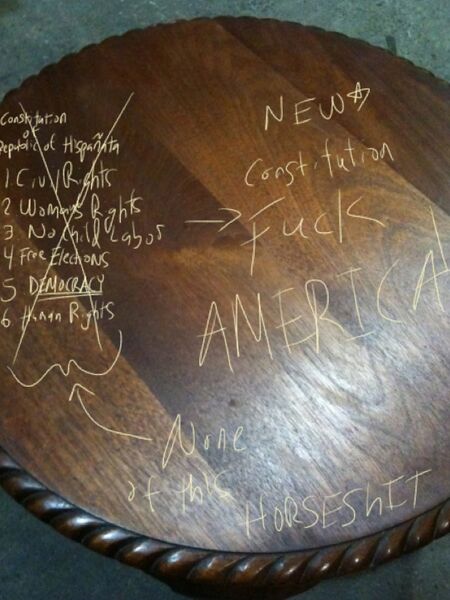 Constitution
of
Republic of Hispañata
1. Civil Rights
2 Womens Rights
3 No Child Labor
4 Free Elections
5 DEMOCRACY
6 Human Rights
NEW
Constitution
Fuck
AMERICA
None
of this
HORSESHIT